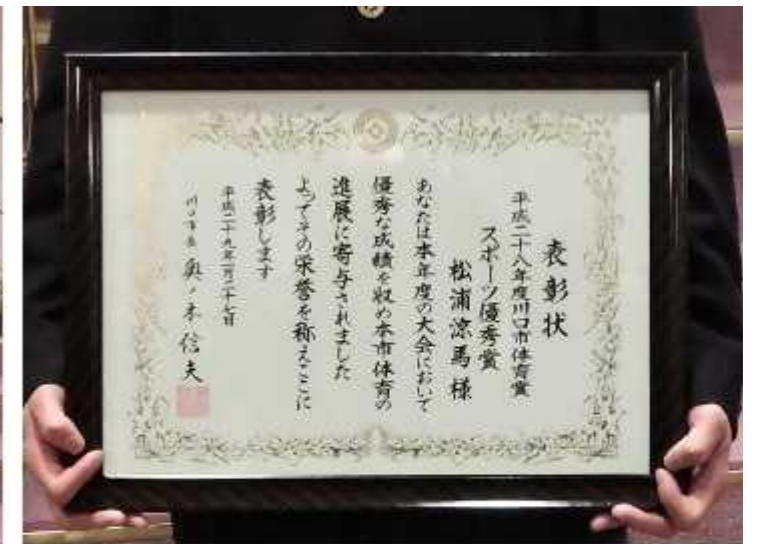 表彰状
平成二十八年度川口市体育賞
スポーツ優秀賞
松浦涼馬 様
あなたは本年度の大会において
優秀な成績を収め本市体育の
進展に寄与されました
よってその栄誉を称えここに
表彰します
平成二十九年一月二十七日
川口市長 奥ノ木信夫